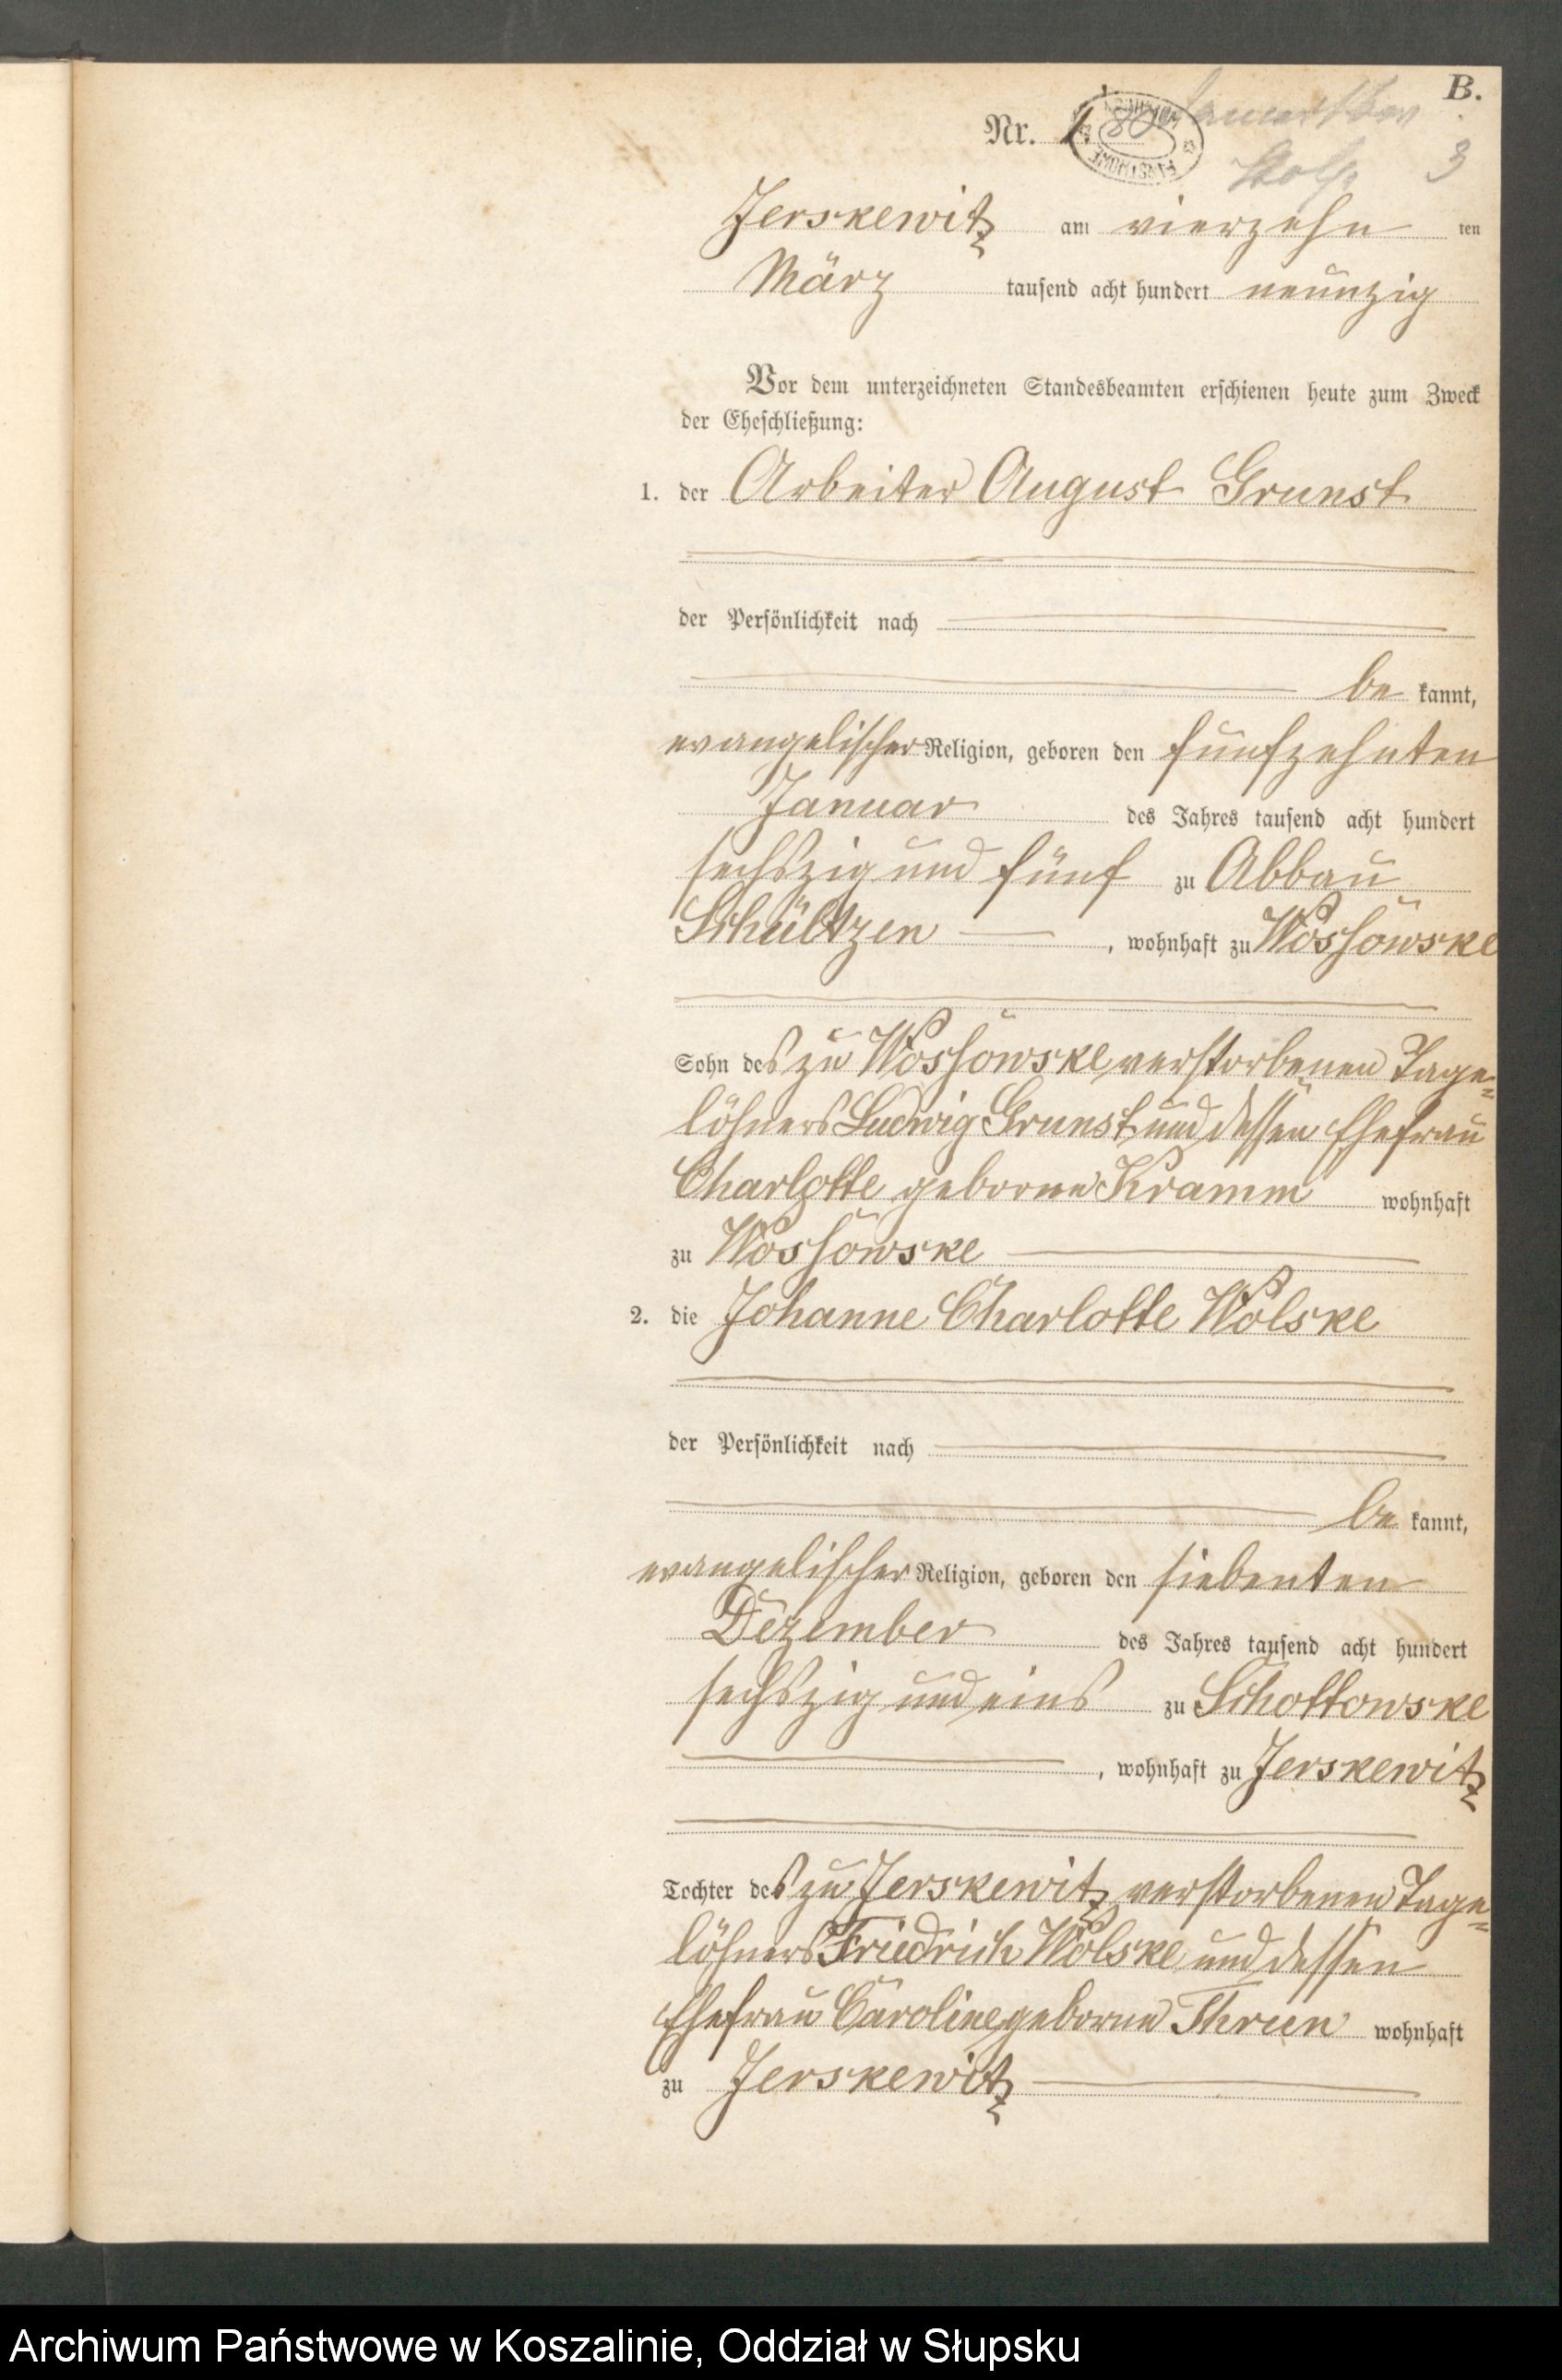 B.
Nr. 1.
3
Jerskewitz am vierzehn ten
März tausend acht hundert neunzig
Vor dem unterzeichneten Standesbeamten erschienen heute zum Zweck
der Eheschließung:
1. der Arbeiter August Grunst
der Persönlichkeit nach
be kannt,
evangelischer Religion, geboren den fünfzehnten
Januar des Jahres tausend acht hundert
sechszig und fünf zu Abbau
Schültzen, wohnhaft zu Wossowske
Sohn des zu Wossowske verstorbenen Tage=
löhners Ludwig Grunst und dessen Ehefrau
Charlotte geborne Kramm wohnhaft
zu Wossowske
2. die Johanne Charlotte Wolske
der Persönlichkeit nach
be kannt,
evangelischer Religion, geboren den siebenten
Dezember des Jahres tausend acht hundert
sechszig und eins zu Schottowske
, wohnhaft zu Jerskewitz
Tochter des zu Jerskewitz verstorbenen Tage=
löhners Friedrich Wolske und dessen
Ehefrau Caroline geborne Thrun wohnhaft
zu Jerskewitz
Archiwum Państwowe w Koszalinie, Oddział w Słupsku